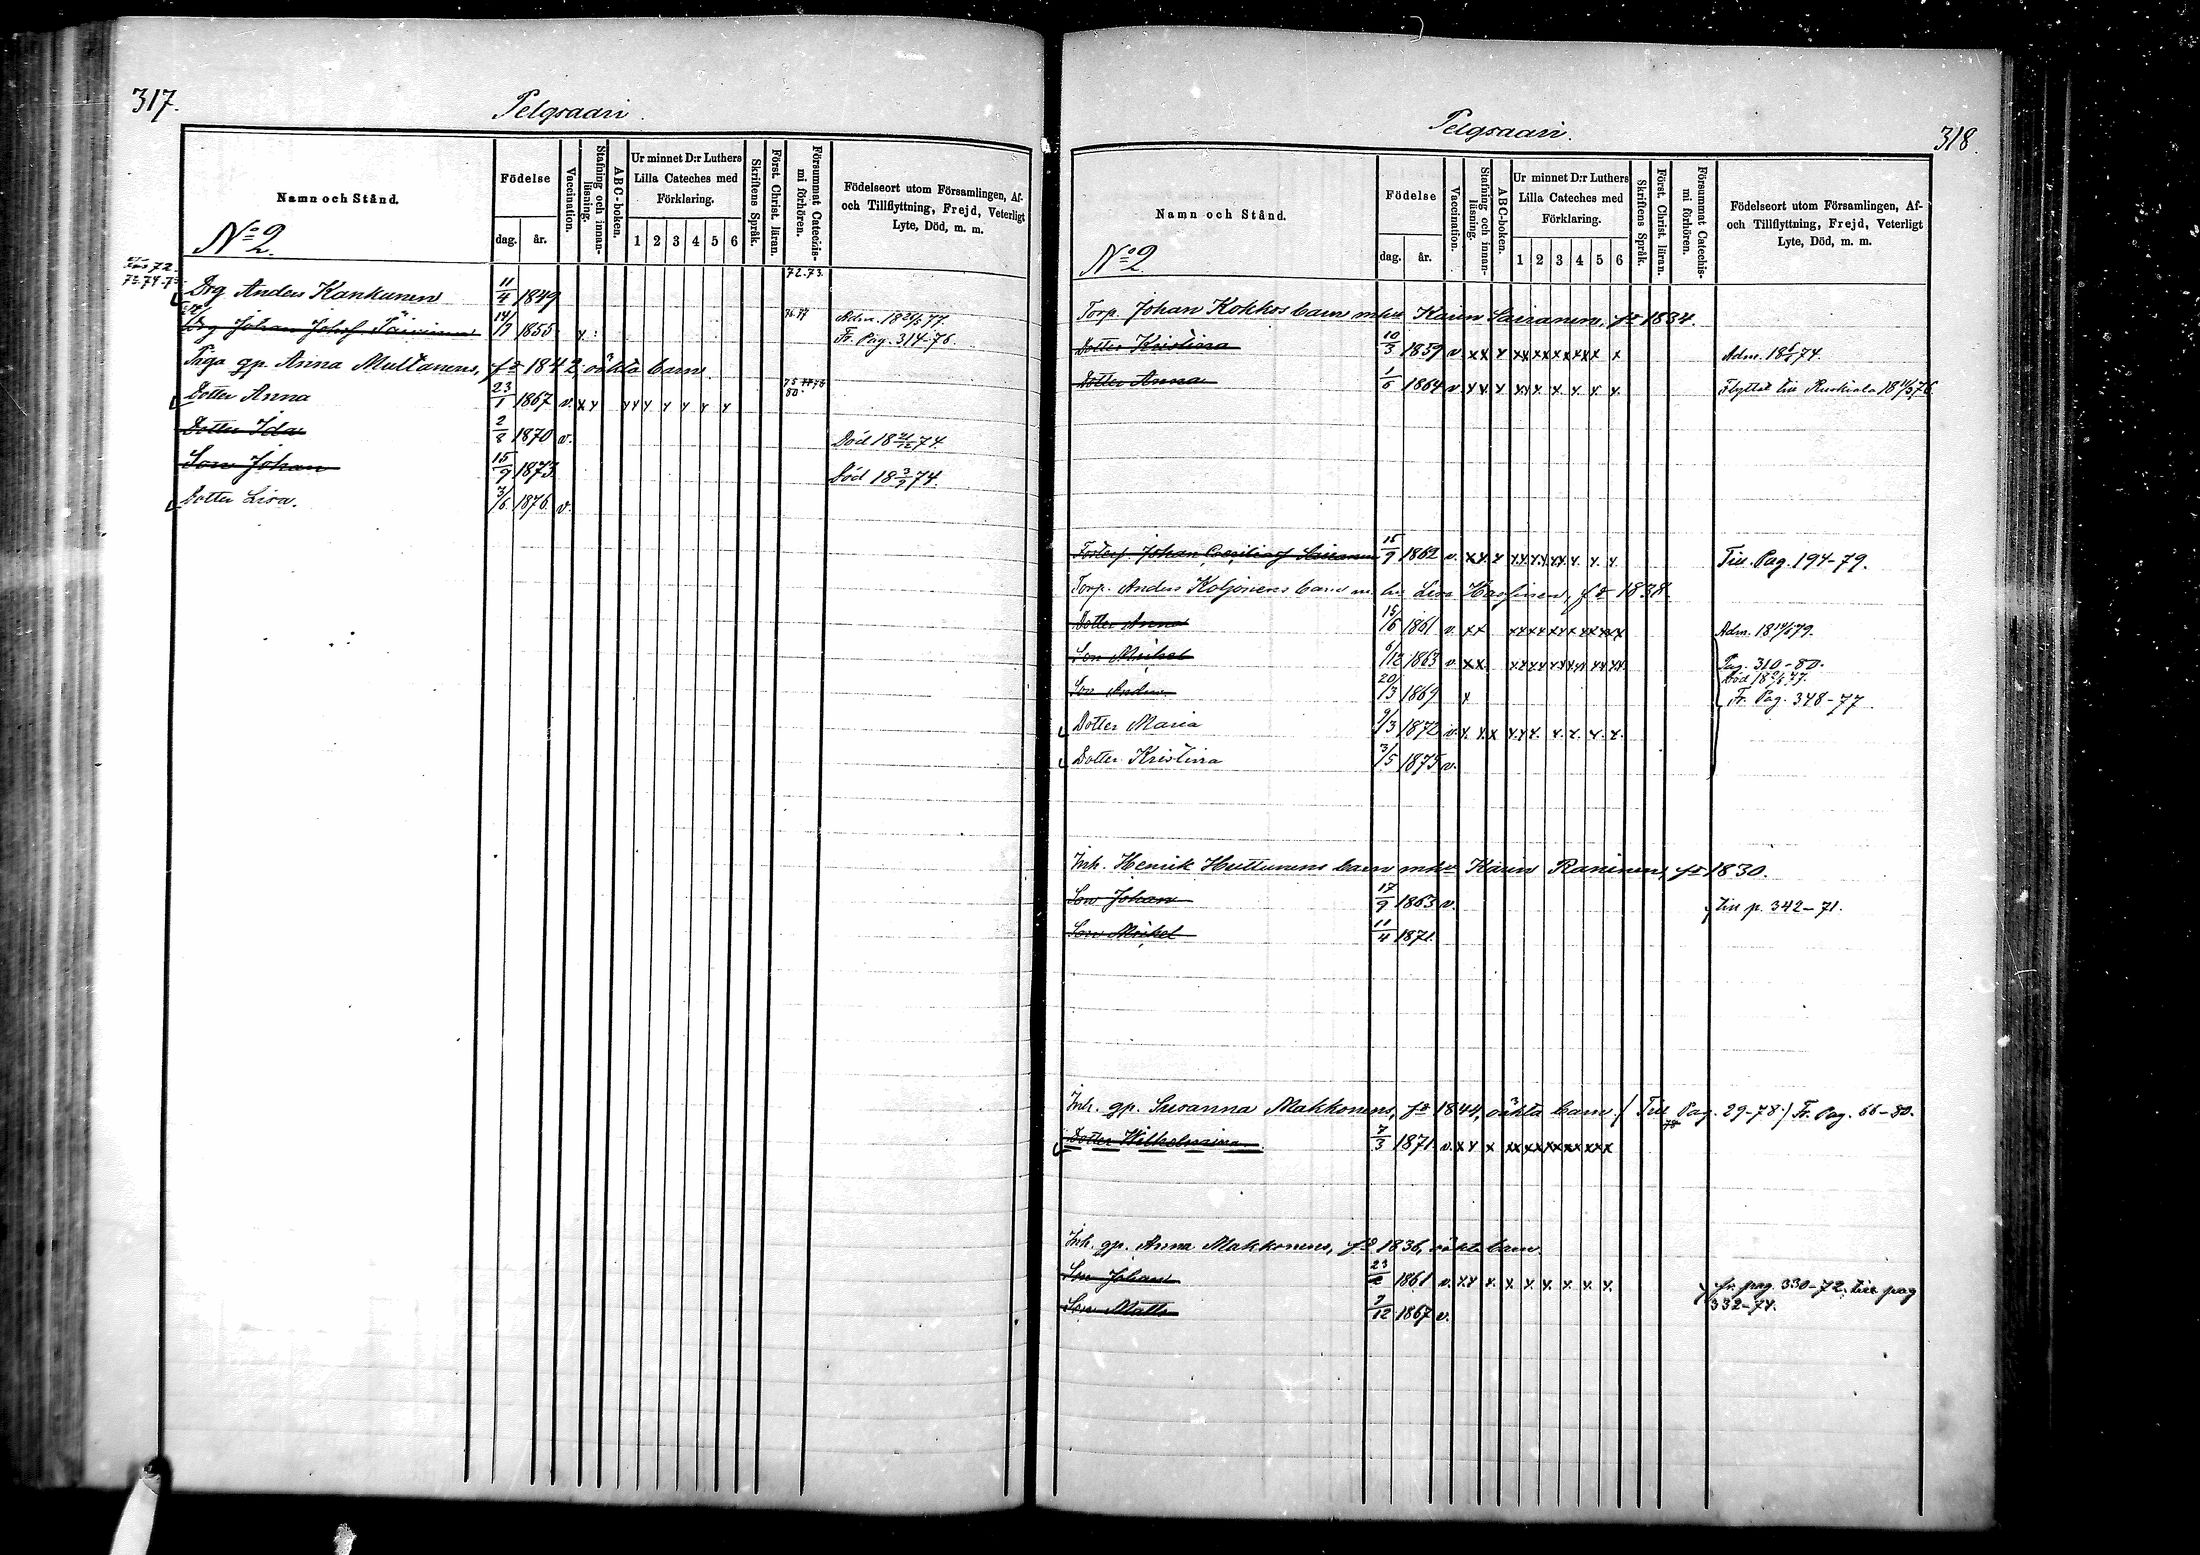 317.
Pelgsaari.
Namn och Stånd.
Födelse
dag. år.
Vaccination.
Stafning och innanläsning.
ABC-boken.
Ur minnet D:r Luthers Lilla Cateches med Förklaring.
1 2 3 4 5 6
Skriftens Språk.
Först. Christ. läran.
Försummat Catechismi förhören.
Födelseort utom Församlingen, Af- och Tillflyttning, Frejd, Veterligt Lyte, Död, m. m.
No 2.
Drg Anders Kankunen 11/4 1849 72.73.
Drg Johan Johsf Päivinen 14/7 1855 x 76.77 Fr. Pag. 314-76.
Piga gp. Anna Multanens, fd 1842, oäkta barn
Dotter Anna 23/1 1867 v. x x x x x x x x x
Dotter Ida 2/8 1870 v. Död 18 21/12 74.
Son Johan 15/9 1873. Död 18 3/2 74.
Dotter Lisa. 7/6 1876. v.
Pelgsaari.
318.
Namn och Stånd.
Födelse
dag. år.
Vaccination.
Stafning och innanläsning.
ABC-boken.
Ur minnet D:r Luthers Lilla Cateches med Förklaring.
1 2 3 4 5 6
Skriftens Språk.
Först. Christ. läran.
Försummat Catechismi förhören.
Födelseort utom Församlingen, Af- och Tillflyttning, Frejd, Veterligt Lyte, Död, m. m.
No 2.
Torp. Johan Kokkos barn m hu Karin Sairanen, fd 1834.
Dotter Kristina 10/3 1859 v x x x x x x x x x x x x Adm. 18 74.
Dotter Anna 1/6 1864 v x x x x x x x x x x Flyttat till Ruskiala 18 76.
Johan Sairanen 15/9 1862 v. x x x x x x x x x x x x Till Pag. 194-79.
Torp. Anders Koljonens barn m. hu Lisa fd 1838.
Dotter Anna 15/6 1861 v. x x x x x x x x x x x x x Adm. 18 79.
Son Mikel 6/12 1863 v. x x x x x x x x x x x x x Pag. 310-80.
Son Anders 20/3 1869 x Död 18 77.
Fr. Pag. 348-77
Dotter Maria 9/3 1872 v. x. x x x x x x. x. x. x.
Dotter Kristina 3/5 1875 v.
Inh. Henrik Huttunens barn m hu Karin Raninen, fd 1830.
Son Johan 17/9 1863 v. till p. 342-71.
Son Mikel 11/4 1871.
Inh. gp. Susanna Makkonens, fd 1844, oäkta barn / Till Pag. 29-78 / Fr. Pag. 66-80.
Dotter Wilhelmina 7/3 1871. v. x x x xx xx xx xx xxx
Inh. gp. Anna Makkonens, fd 1836, oäkta barn.
Son Johan 23/2 1861 v. x x x. x x. x. x. x. x. fr. pag. 330-72, till pag
Son Matts 7/12 1867 v. 332-74.